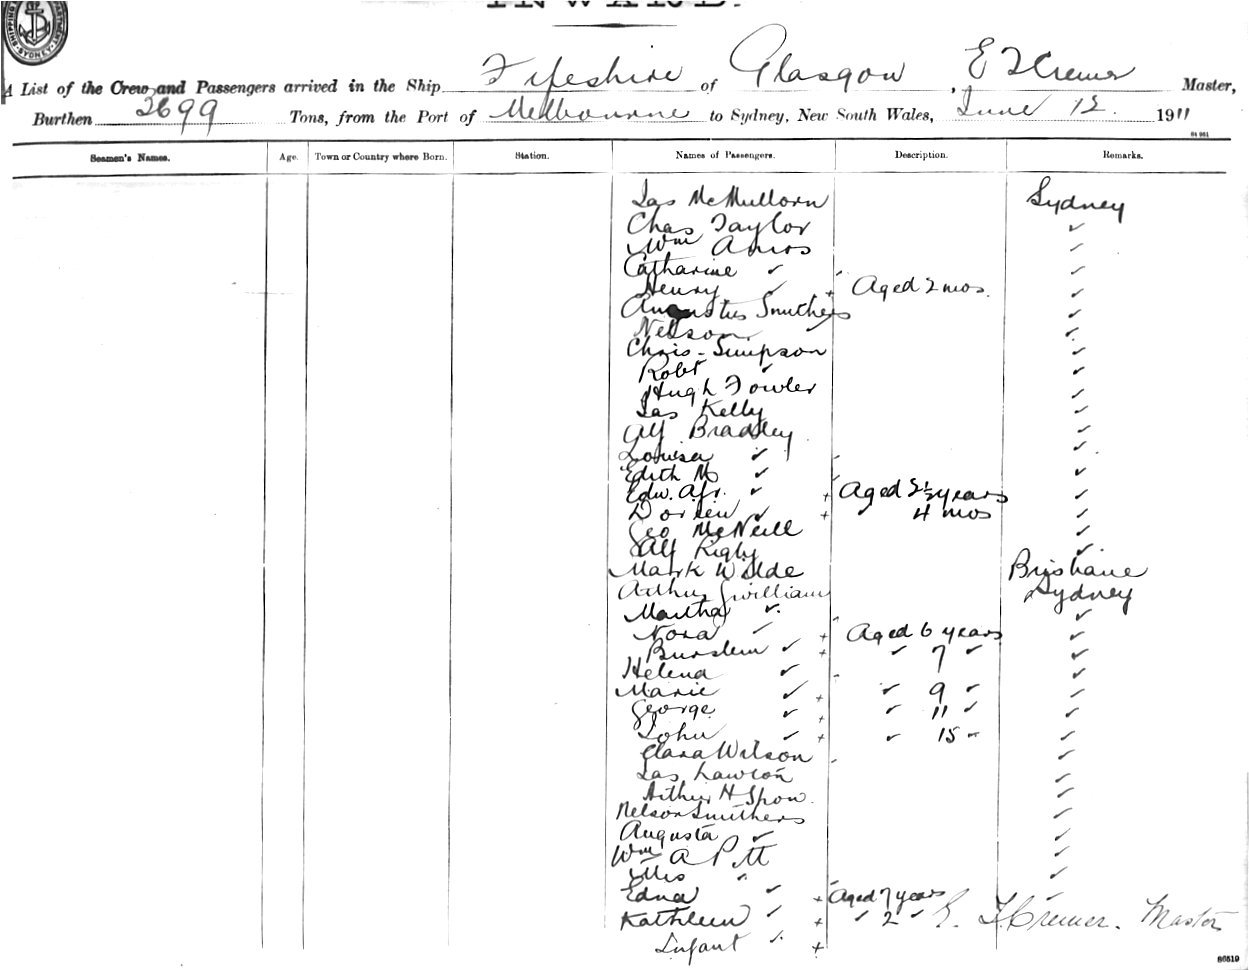 INWARD.
SHIPPING DEPARTMENT SYDNEY
A List of the Crew and Passengers arrived in the Ship Fifeshire of Glasgow, E F Cremer Master,
Burthen 3699 Tons, from the Port of Melbourne to Sydney, New South Wales, June 12 1911
Seamen's Names. Age. Town or Country where Born. Station. Names of Passengers. Description. Remarks.
Jas McMullorn Sydney
Chas Taylor ✓
Wm Amos ✓
Catharine ✓ ✓
Henry ✓ + Aged 2 mos. ✓
Augustus Smithers ✓
Nelson ✓ ✓
Chris. Simpson ✓
Robt ✓ ✓
Hugh Fowler ✓
Jas Kelly ✓
Alf Bradley ✓
Louisa ✓ ✓
Edith M ✓ ✓
Edw. Afr. ✓ + Aged 2½ years ✓
Doreen ✓ + ✓ 4 mos ✓
Geo McNeill ✓
Alf Rigby ✓
Mark Wilde Brisbane
Arthur Gwilliam Sydney
Martha ✓ ✓
Nora ✓ + Aged 6 years ✓
Burslem ✓ + ✓ 7 ✓ ✓
Helena ✓ ✓
Marie ✓ + ✓ 9 ✓ ✓
George ✓ + ✓ 11 ✓ ✓
John ✓ + ✓ 15 ✓ ✓
Clara Wilson ✓
Jas Lawton ✓
Arthur H Spow. ✓
Nelson Smithers ✓
Augusta ✓ ✓
Wm A Pitt ✓
Mrs " ✓
Edna ✓ + Aged 7 years ✓
Kathleen ✓ + ✓ 2 ✓ E. F. Cremer. Master
Infant ✓ +